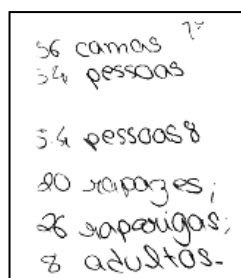 56 camas
54 pessoas
54 pessoas 8
20 rapazes;
26 raparigas;
8 adultos.